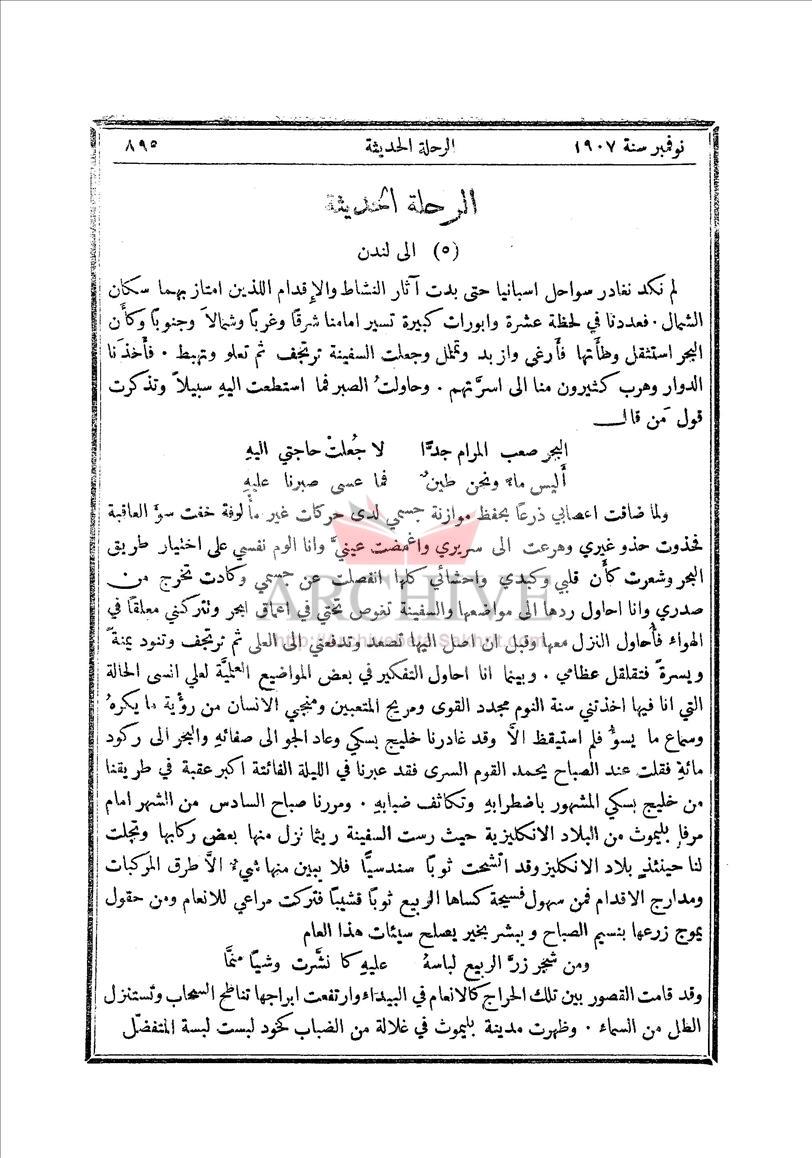 نوفمبر سنة ١٩٠٧ الرحلة الحديثة ٨٩٥
الرحلة الحديثة
(٥) الى لندن
لم نكد نغادر سواحل اسبانيا حتى بدت آثار النشاط والإقدام اللذين امتاز بهما سكان
الشمال . فعددنا في لحظة عشرة وابورات كبيرة تسير امامنا شرقًا وغربًا وشمالاً وجنوبًا وكأن
البحر استثقل وطأتها فأرغى وازبد وتململ وجعلت السفينة ترتجف ثم تعلو وتهبط . فأخذنا
الدوار وهرب كثيرون منا الى اسرَّتهم . وحاولتُ الصبر فما استطعت اليهِ سبيلاً وتذكرت
قول مَن قال
البحر صعب المرام جدًّا لا جُعلتْ حاجتي اليهِ
أليس ماءً ونحن طينٌ فما عسى صبرنا عليهِ
ولما ضاقت اعصابي ذرعًا بحفظ موازنة جسمي لدى حركات غير مألوفة خفت سوَّ العاقبة
فحذوت حذو غيري وهرعت الى سريري واغمضت عينيَّ وانا الوم نفسي على اختيار طريق
البحر وشعرت كأن قلبي وكبدي واحشائي كلها انفصلت عن جسمي وكادت تخرج من
صدري وانا احاول ردها الى مواضعها والسفينة تغوص تحتي في اعماق البحر ونتركني معلقًا في
الهواء فأحاول النزل معها وقبل ان اصل اليها تصعد وتدفعني الى العلى ثم ترتجف وتنود يمنةً
ويسرةً فتقلقل عظامي . وبينما انا احاول التفكير في بعض المواضيع العلميَّة لعلي انسى الحالة
التي انا فيها اخذتني سنة النوم مجدد القوى ومريح المتعبين ومنجي الانسان من رؤية ما يكرهُ
وسماع ما يسوءُ فلم استيقظ الاَّ وقد غادرنا خليج بسكي وعاد الجو الى صفائهِ والبحر الى ركود
مائهِ فقلت عند الصباح يحمد القوم السرى فقد عبرنا في الليلة الفائتة اكبر عقبة في طريقنا
من خليج بسكي المشهور باضطرابهِ وتكاثف ضبابهِ . ومررنا صباح السادس من الشهر امام
مرفإِ بليموث من البلاد الانكليزية حيث رست السفينة ريثما نزل منها بعض ركابها وتجلت
لنا حينئذٍ بلاد الانكليز وقد اتَّشحت ثوبًا سندسيًّا فلا يبين منها شيءٌ الاَّ طرق المركبات
ومدارج الاقدام فمن سهول فسيحة كساها الربيع ثوبًا قشيبًا فتركت مراعي للانعام ومن حقول
يموج زرعها بنسيم الصباح ويبشر بخير يصلح سيئات هذا العام
ومن شجر زرَّ الربيع لباسهُ عليهِ كما نشَّرت وشيًا منمَّا
وقد قامت القصور بين تلك الحراج كالانعام في البيداء وارتفعت ابراجها تناطح السحاب وتستنزل
الطل من السماء . وظهرت مدينة بليموث في غلالة من الضباب كخود لبست لبسة المتفضّل
ARCHIVE
http://Archivebeta.Sakhrit.com